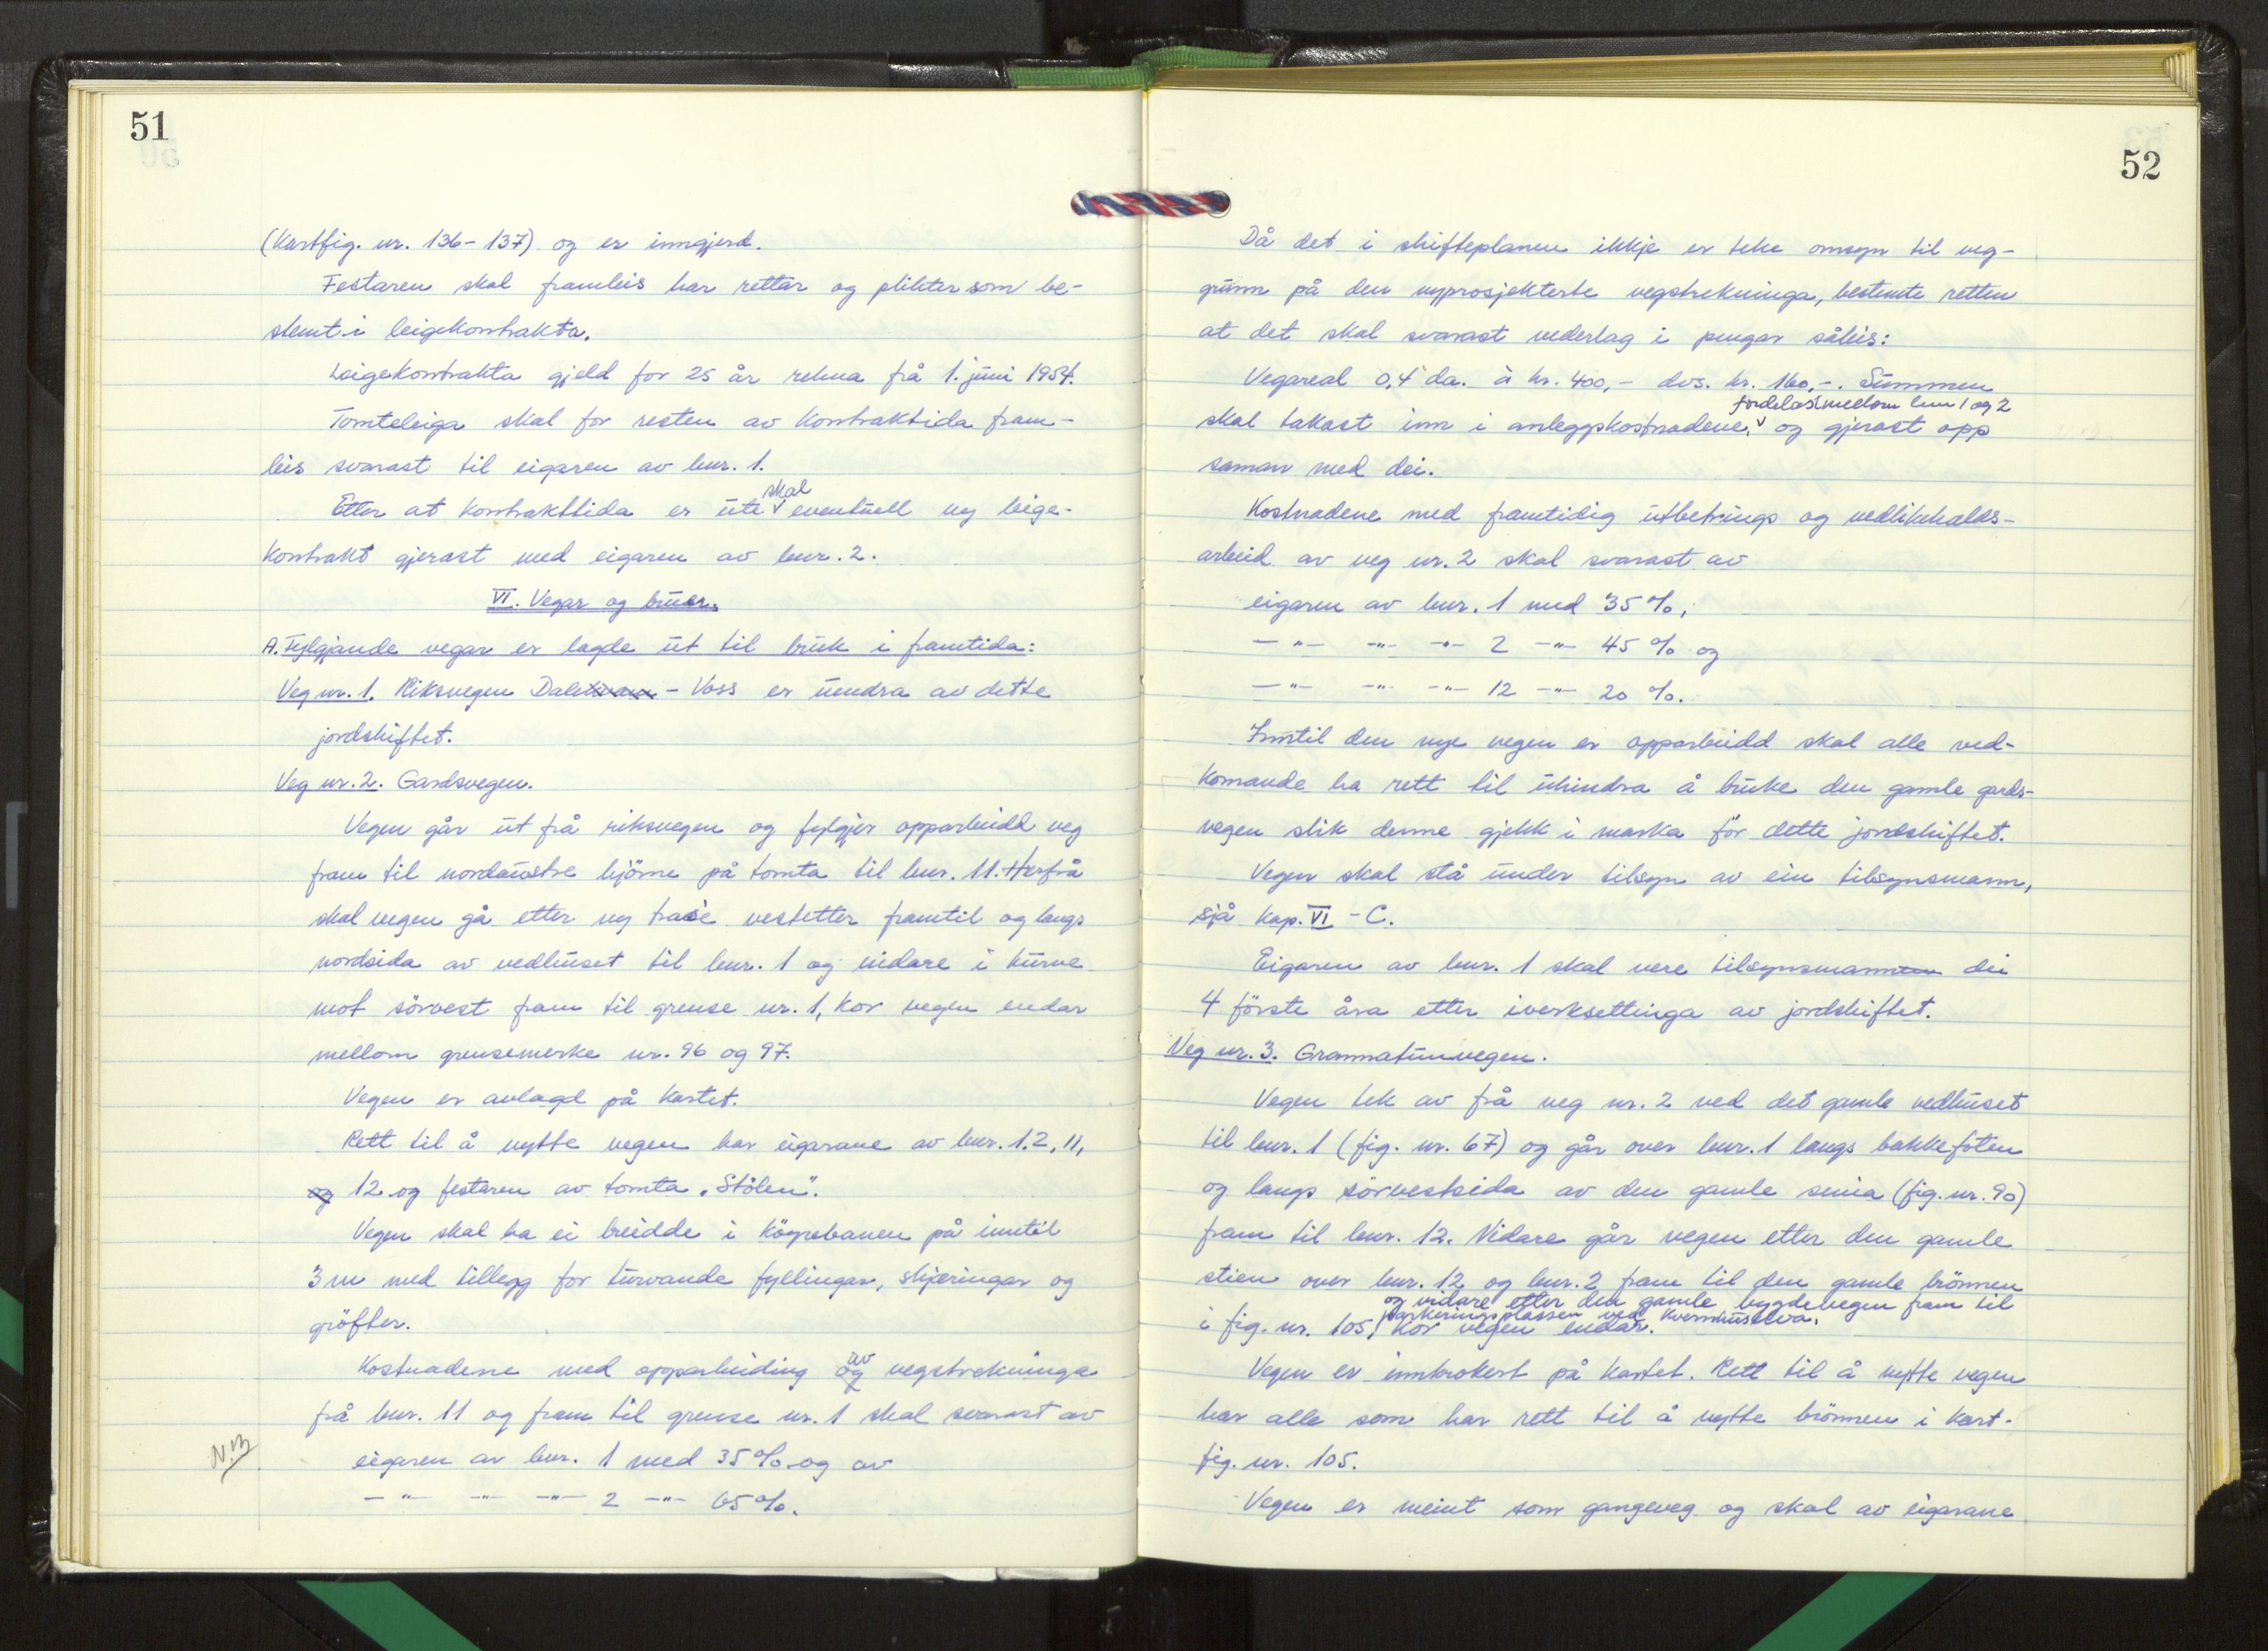 51
(Kartfig. nr. 136-137) og er inngjerd.
Festaren skal framleis har rettar og plikter som be-
stemt i leigekontrakta.
Leigekontrakta gjeld for 25 år rekna frå 1. juni 1954.
Tomteleiga skal for resten av kontraktida fram-
leis svarast til eigaren av bnr. 1.
skal
Etter at kontrakttida er ute eventuell ny leige-
kontrakt gjerast med eigaren av bnr. 2.
VI. Vegar og bruer.
A. Fylgjande vegar er lagde ut til bruk i framtida:
Veg nr. 1. Riksvegen Dale - Voss er uendra av dette
jordskiftet.
Veg nr. 2. Gardsvegen.
Vegen går ut frå riksvegen og fylgjer opparbeidd veg
fram til nordaustre hjörne på tomta til bnr. 11. Herfrå
skal vegen gå etter ny trase vestetter framtil og langs
nordsida av vedhuset til bnr. 1 og vidare i kurve
mot sörvest fram til grense nr. 1, kor vegen endar
mellom grensemerke nr. 96 og 97.
Vegen er avlagd på kartet.
Rett til å nytte vegen har eigarane av bnr. 1, 2, 11,
og 12 og festaren av tomta „Stölen".
Vegen skal ha ei breidde i köyrebanen på inntil
3 m med tillegg for turvande fyllingar, skjæringar og
gröfter.
av
Kostnadene med opparbeiding og vegstrekninga
frå bnr. 11 og fram til grense nr. 1 skal svarast av
N.B
eigaren av bnr. 1 med 35 % og av
- " - - " - - " - 2 - " - 65 %.
52
Då det i skifteplanen ikkje er teke omsyn til veg-
grunn på den nyprosjekterte vegstrekninga, bestemte retten
at det skal svarast vederlag i pengar såleis:
Vegareal 0,4 da. à kr. 400,- dvs. kr. 160,-. Summen
fordelast mellom bnr 1 og 2
skal takast inn i anleggskostnadene, og gjerast opp
saman med dei.
Kostnadene med framtidig utbetrings og vedlikehalds-
arbeid av veg nr. 2 skal svarast av
eigaren av bnr. 1 med 35 %,
- " - - " - - " - 2 - " - 45 % og
- " - - " - - " - 12 - " - 20 %.
Inntil den nye vegen er opparbeidd skal alle ved-
komande ha rett til uhindra å bruke den gamle gards-
vegen slik denne gjekk i marka för dette jordskiftet.
Vegen skal stå under tilsyn av ein tilsynsmann,
sjå kap. VI - C.
Eigaren av bnr. 1 skal vere tilsynsmannen dei
4 förste åra etter iverksettinga av jordskiftet.
Veg nr. 3. Grannatunvegen.
Vegen tek av frå veg nr. 2 ved det gamle vedhuset
til bnr. 1 (fig. nr. 67) og går over bnr. 1 langs bakkefoten
og langs sörvestsida av den gamle smia (fig. nr. 90)
fram til bnr. 12. Vidare går vegen etter den gamle
stien over bnr. 12 og bnr. 2 fram til den gamle brönnen
og vidare etter den gamle bygdevegen fram til
parkeringsplassen ved Kvernhuselva,
i fig. nr. 105, kor vegen endar.
Vegen er innkrokert på kartet. Rett til å nytte vegen
har alle som har rett til å nytte brönnen i kart-
fig. nr. 105.
Vegen er meint som gangeveg og skal av eigarane